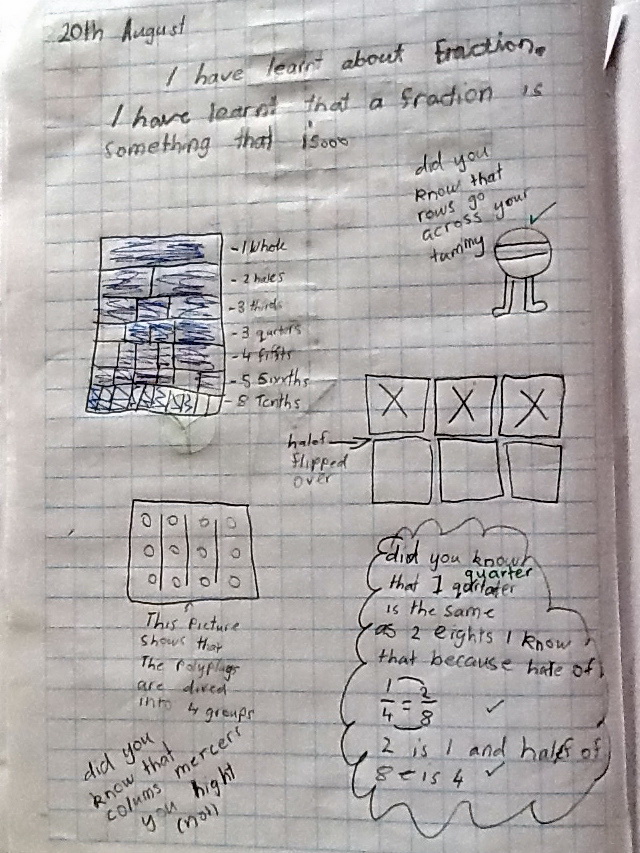 20th August
I have learnt about fraction.
I have learnt that a fraction is
something that isooo
did you
know that
rows go
across your
tummy
- 1 Whole
- 2 halves
- 3 thirds
- 3 quarters
- 4 fifths
- 5 Sixths
- 8 Tenths
X X X
halef
flipped
over
This Picture
shows that
The Polyplugs
are dived
into 4 groups
did you
know that
colums mercers
you hight
(not)
did you know
quarter
that 1 qortater
is the same
as 2 eights I know
that because hafe of
1/4 = 2/8
2 is 1 and half of
8 is 4